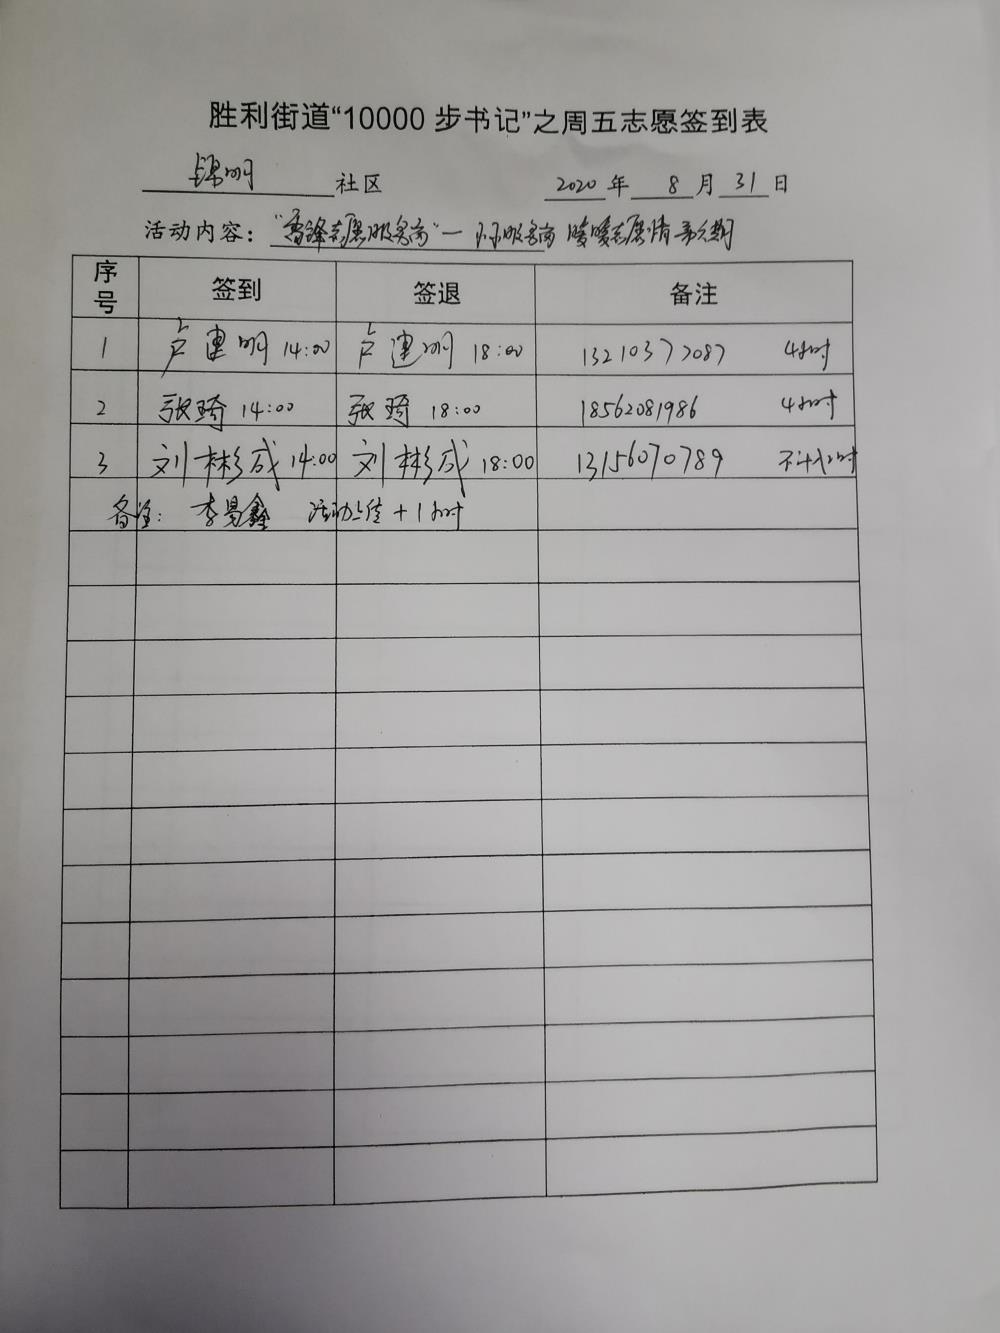 胜利街道“10000 步书记”之周五志愿签到表
锦明 社区 2020 年 8 月 31 日
活动内容：“雷锋志愿服务岗”— 小小服务岗 暖暖志愿情
序号 签到 签退 备注
1 卢建明 14:00 卢建明 18:00 13210377087 4小时
2 张琦 14:00 张琦 18:00 18562081986 4小时
3 刘彬成 14:00 刘彬成 18:00 13156070789 不计小时
备注： 李昌鑫 活动上传 +1小时